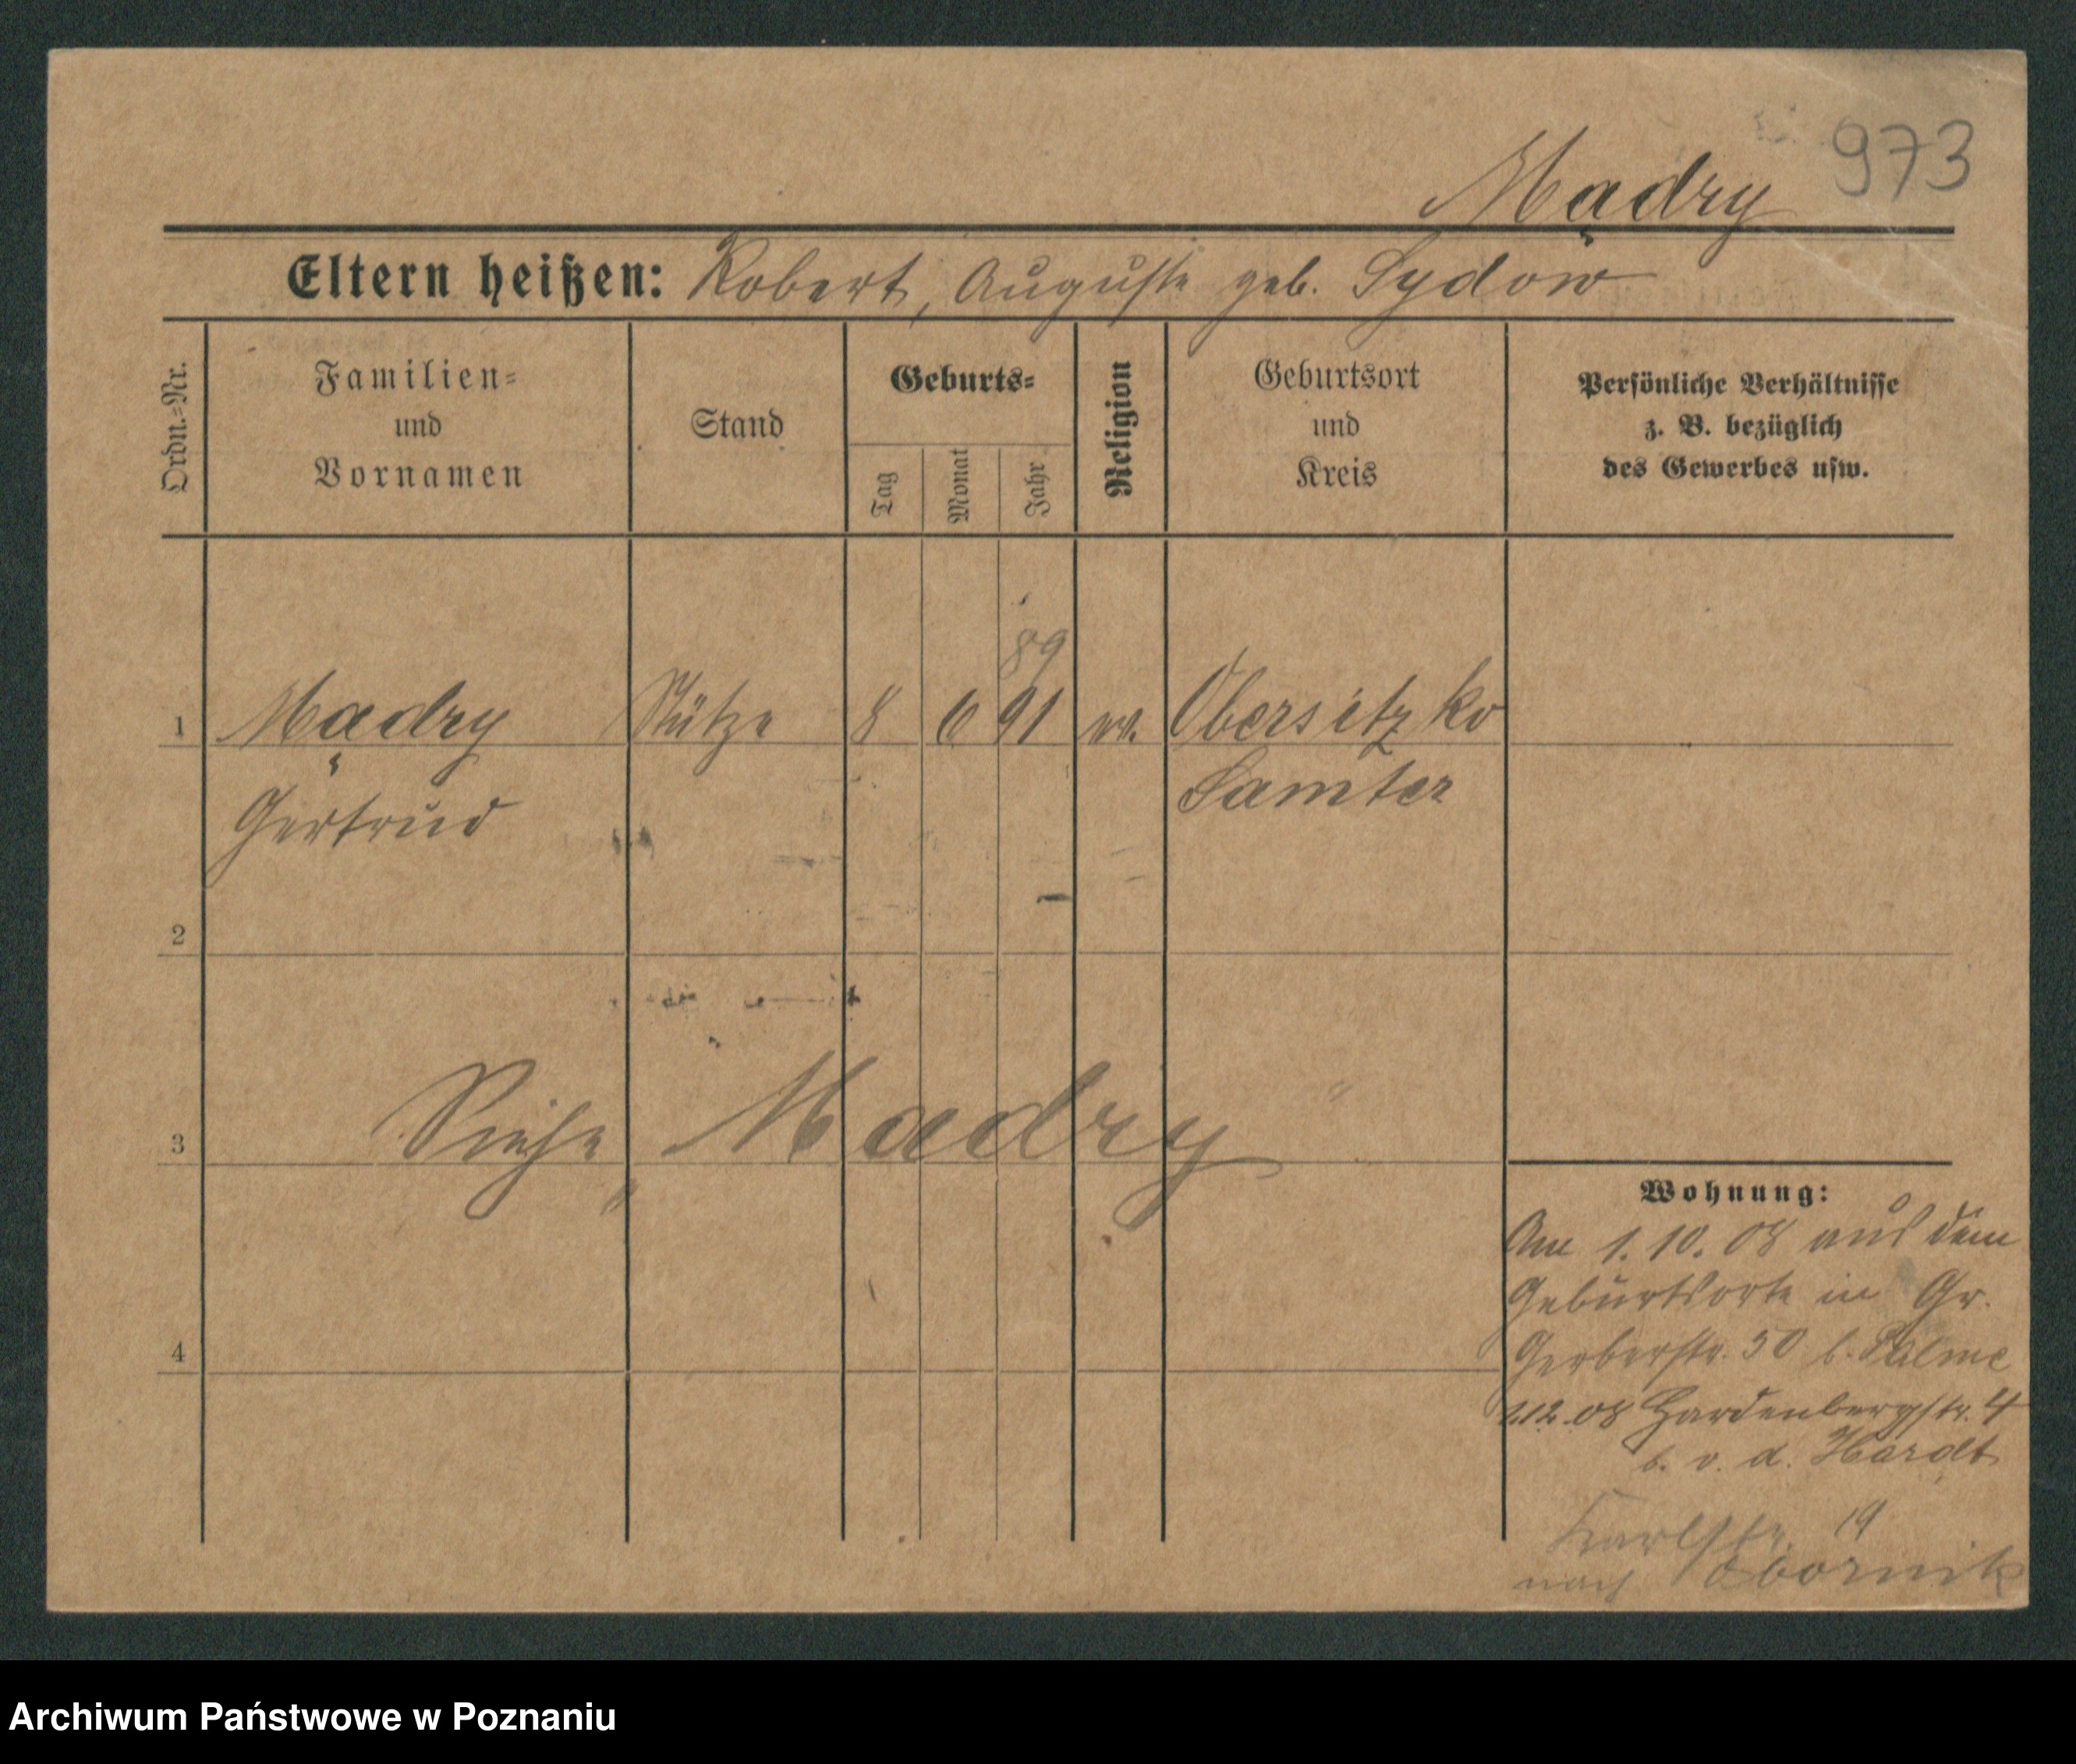 973
Mądry
Eltern heißen: Robert, Auguste geb. Sydow
Ordn.=Nr.
Familien=
und
Vornamen
Stand
Geburts=
Tag
Monat
Jahr
Religion
Geburtsort
und
Kreis
Persönliche Verhältnisse
z. B. bezüglich
des Gewerbes usw.
89
1 Mądry Stütze 8 6 91 ev. Obersitzko
Gertrud Samter
2
3 Siehe „Madry"
4
Wohnung:
Am 1.10.08 aus dem
Geburtsorte in Gr.
Gerberstr. 50 b.
1.12.08 Hardenbergstr. 4
b. v. d. Hardt
Karlstr. 19
nach Obornik
Archiwum Państwowe w Poznaniu